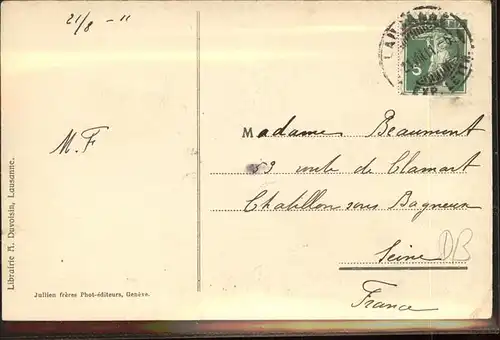 21/8 - 11
M. F
Librairie A. Duvoisin, Lausanne.
Jullien frères Phot-éditeurs, Genève.
LAUSANNE
5
Madame Beaumont
53 route de Clamart
Chatillon sous Bagneux
Seine
DB
France